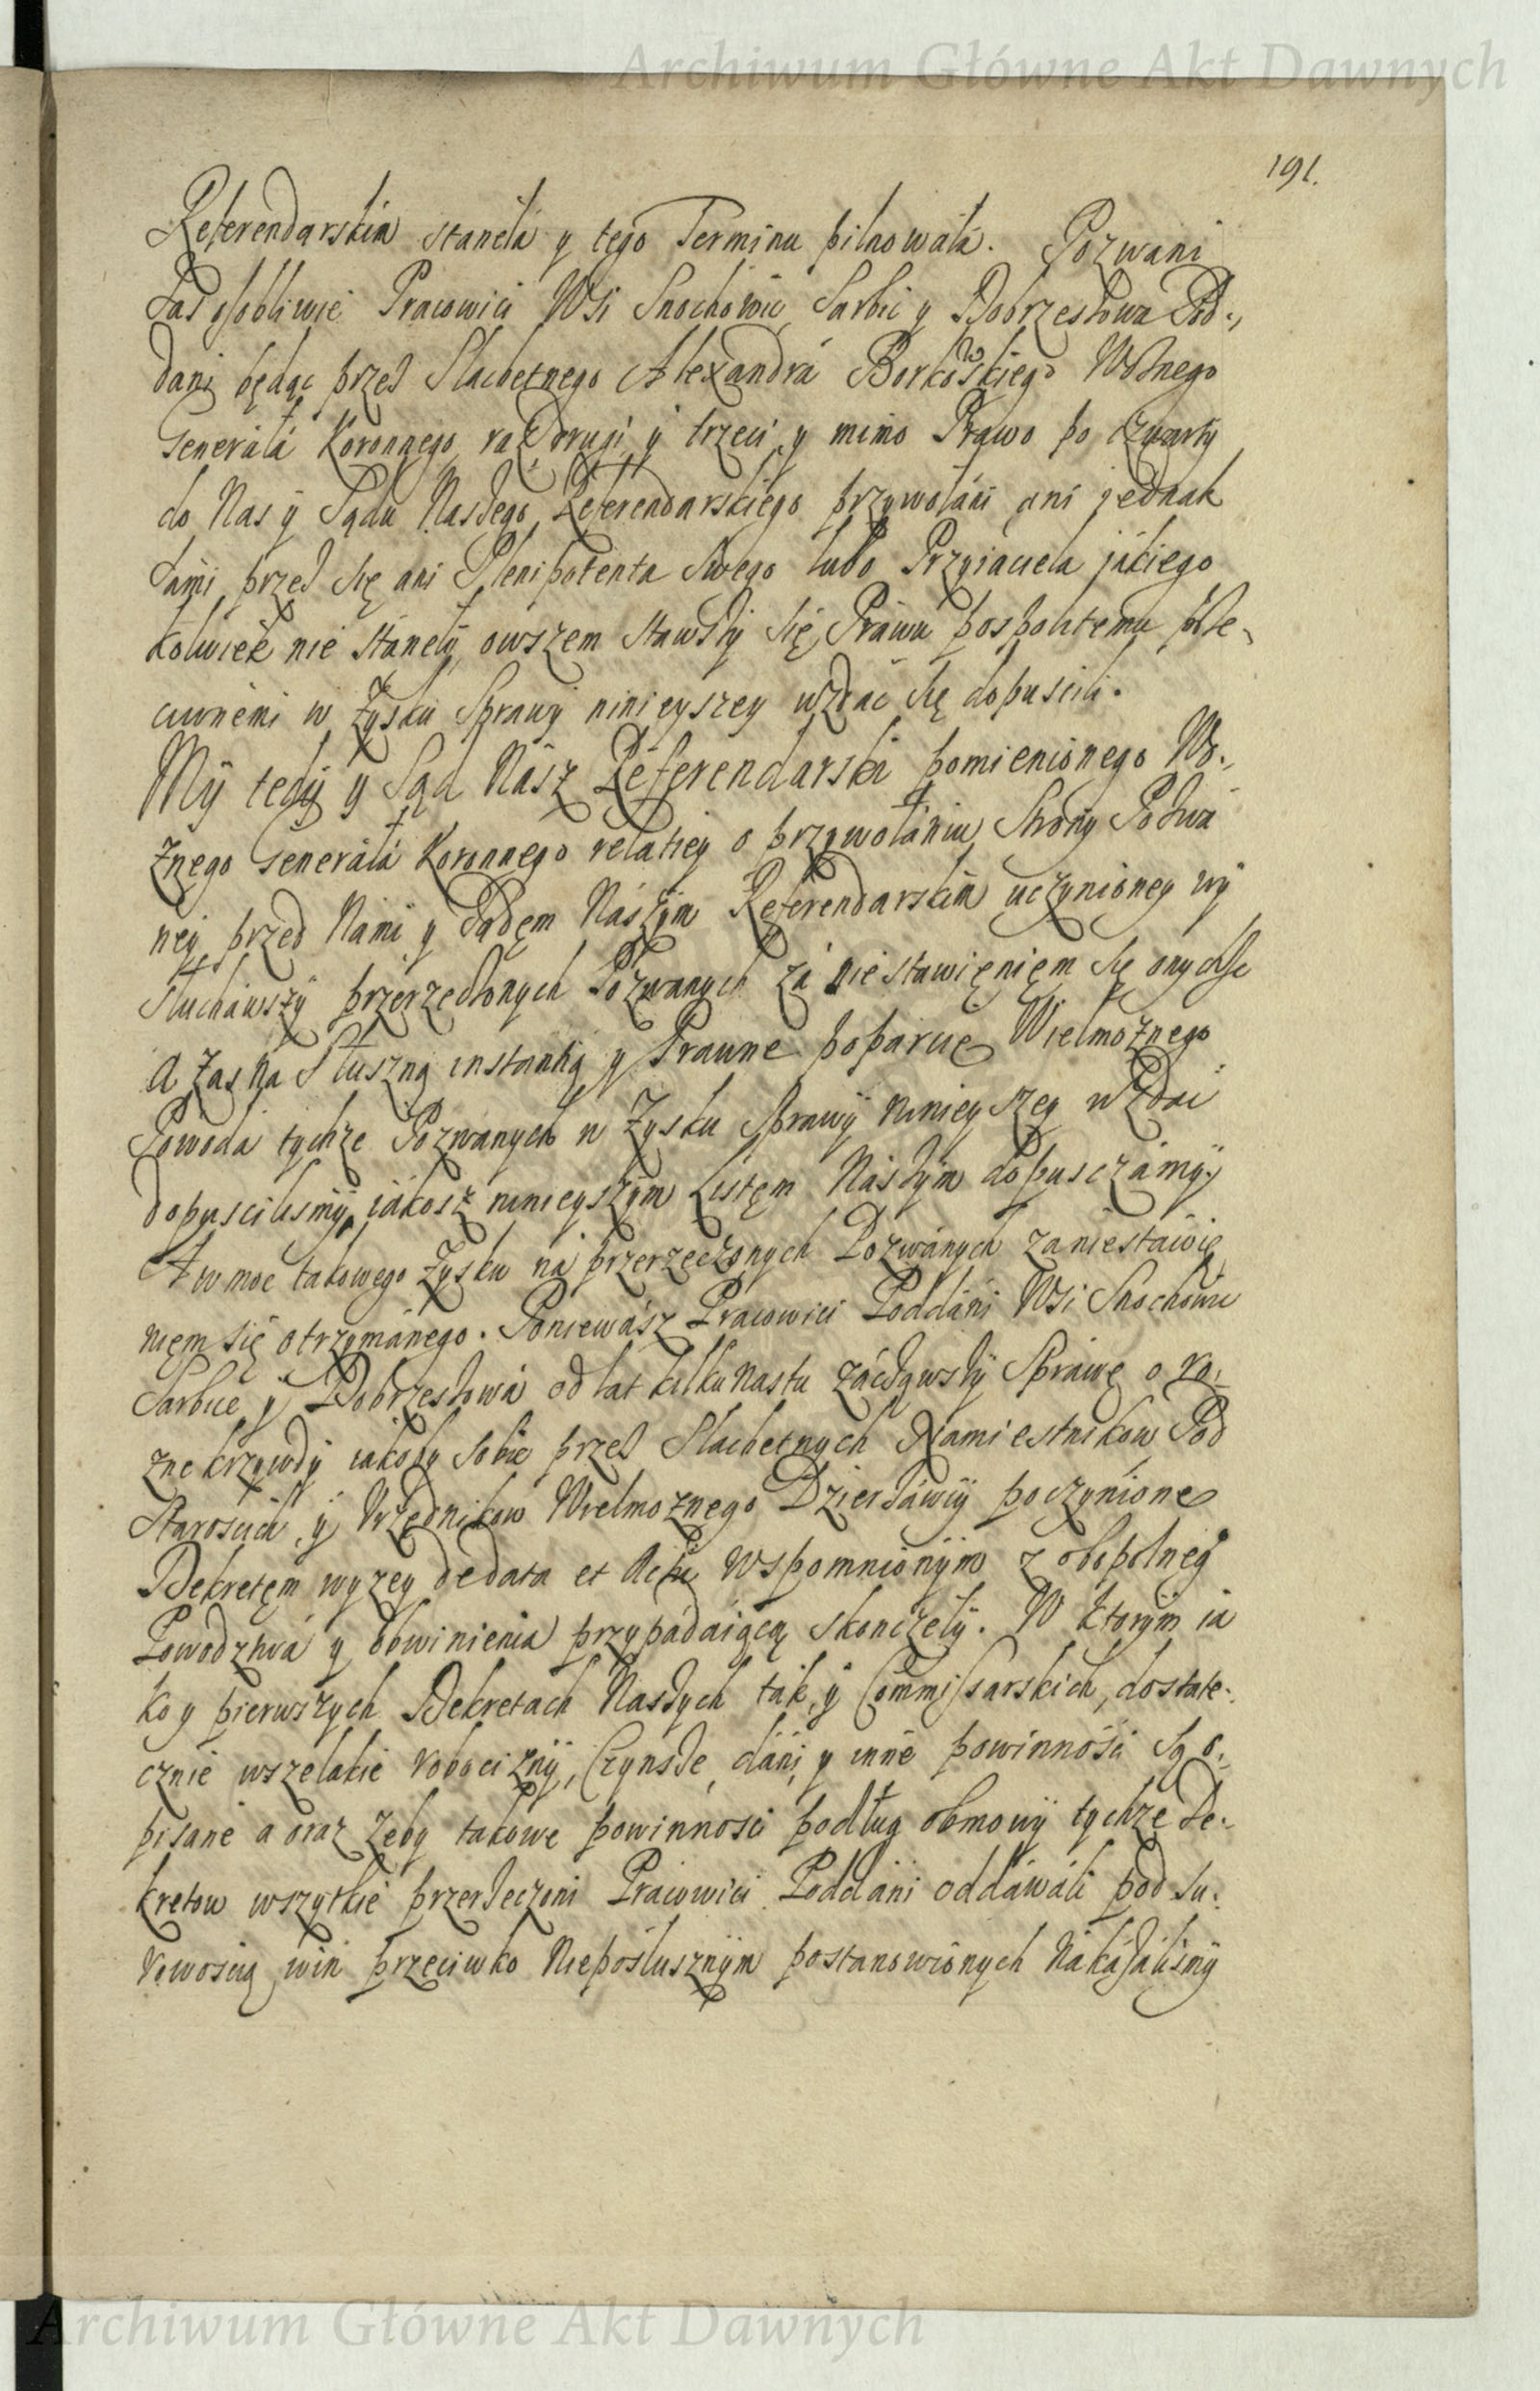 Archiwum Główne Akt Dawnych
191.
Referendarskim stanęła y tego Terminu pilnowała. Pozwani
zas osobliwie Pracowici Wsi Snochowic, Sarbic y Dobrzeszowa Pod-,
dani będąc przez Slachetnego Alexandra Borkowskiego Woznego
Generała Koronnego raz drugi y trzeci y mimo Prawo po czwarty
do Nas y Sądu Naszego Referendarskiego przywołani ani jednak
sami przez się ani Plenipotenta swego lubo Przyiaciela jakiego
kolwiek nie staneły, owszem stawszy się Prawu pospolitemu prze-,
ciwnemi w Zysku Sprawy ninieyszey wzdać się dopuscili.
My tedy y Sąd Nasz Referendarski pomienionego Wo-,
znego Generała Koronnego relatiey o przywołaniu Strony Pozwa
ney przed Nami y Sądem Naszym Referendarskim uczynioney wy
słuchawszy przerzeczonych Pozwanych za nie stawieniem się onychże
A zas na Słuszną instantią y Prawne poparcie Wielmożnego
Powoda tychze Pozwanych w Zysku sprawy ninieyszey wzdać
dopuscilismy, jakosz ninieyszym Listem Naszym dopusczamy.
A w moc takowego Zysku na przerzeczonych Pozwanych za niestawie
niem się otrzymanego. Poniewasz Pracowici Poddani Wsi Snochowic
Sarbice y Dobrzeszowa od lat kilkunastu zaczawszy Sprawę o ro-,
zne krzywdy jakoby sobie przez Slachetnych Namiestnikow Pod
Starościch y Urzędnikow Wielmożnego Dzierzawcy poczynione
Dekretem wyzey de data et Actu wspomnionym z obopolney
Powodztwa y obwinienia przypadaiącą skonczeły. W ktorym ia
ko y pierwszych Dekretach Naszych tak y Commissarskich, dostate-,
cznie wszelakie robocizny, Czynsze, dani y inne powinnosci są o-,
pisane a oraz żeby takowe powinnosci podług obmowy tychze De-,
kretow wszytkie przerzeczoni Pracowici Poddani oddawali pod su-,
rowoscią win przeciwko Nieposłusznym postanowionych nakazalismy
Archiwum Główne Akt Dawnych